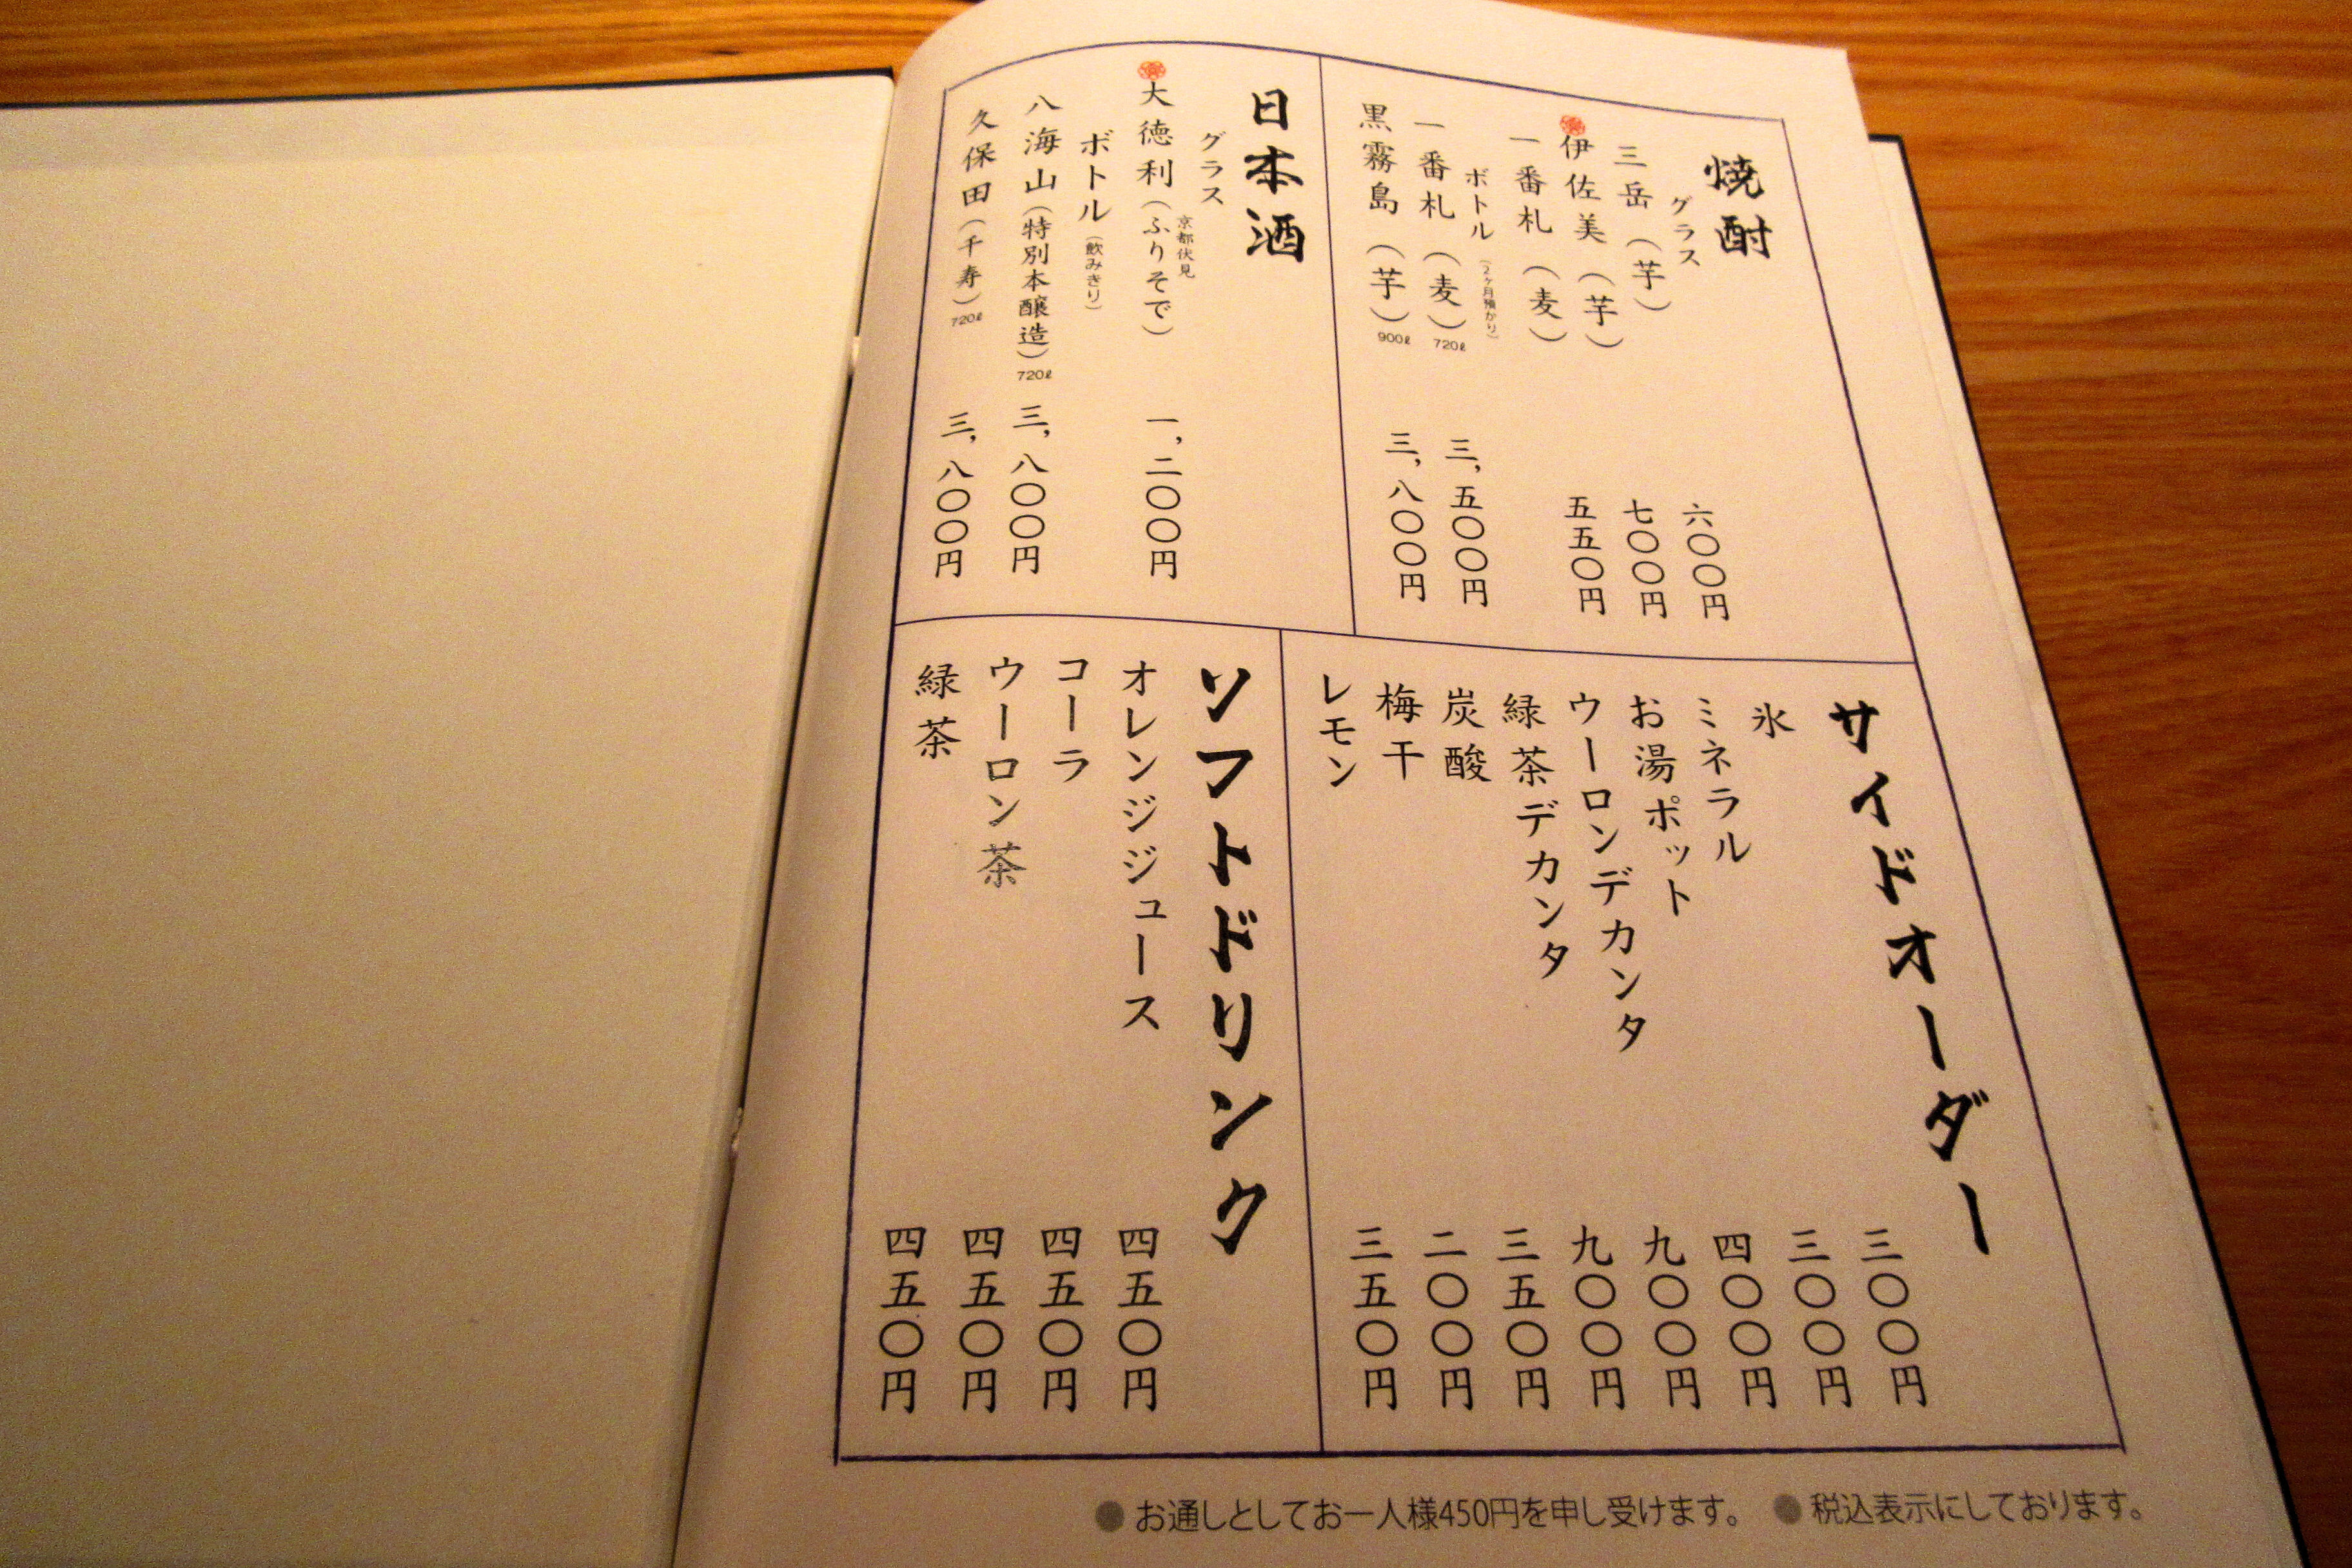 焼酎
グラス
三岳(芋) 六〇〇円
伊佐美(芋) 七〇〇円
一番札(麦) 五五〇円
ボトル(2ヶ月預かり)
一番札(麦)720ℓ 三,五〇〇円
黒霧島(芋)900ℓ 三,八〇〇円
日本酒
グラス
京都伏見
大徳利(ふりそで) 一,二〇〇円
ボトル(飲みきり)
八海山(特別本醸造)720ℓ 三,八〇〇円
久保田(千寿)720ℓ 三,八〇〇円
サイドオーダー
氷 三〇〇円
ミネラル 三〇〇円
お湯ポット 四〇〇円
ウーロンデカンタ 九〇〇円
緑茶デカンタ 九〇〇円
炭酸 三五〇円
梅干 二〇〇円
レモン 三五〇円
ソフトドリンク
オレンジジュース 四五〇円
コーラ 四五〇円
ウーロン茶 四五〇円
緑茶 四五〇円
●お通しとしてお一人様450円を申し受けます。 ●税込表示にしております。